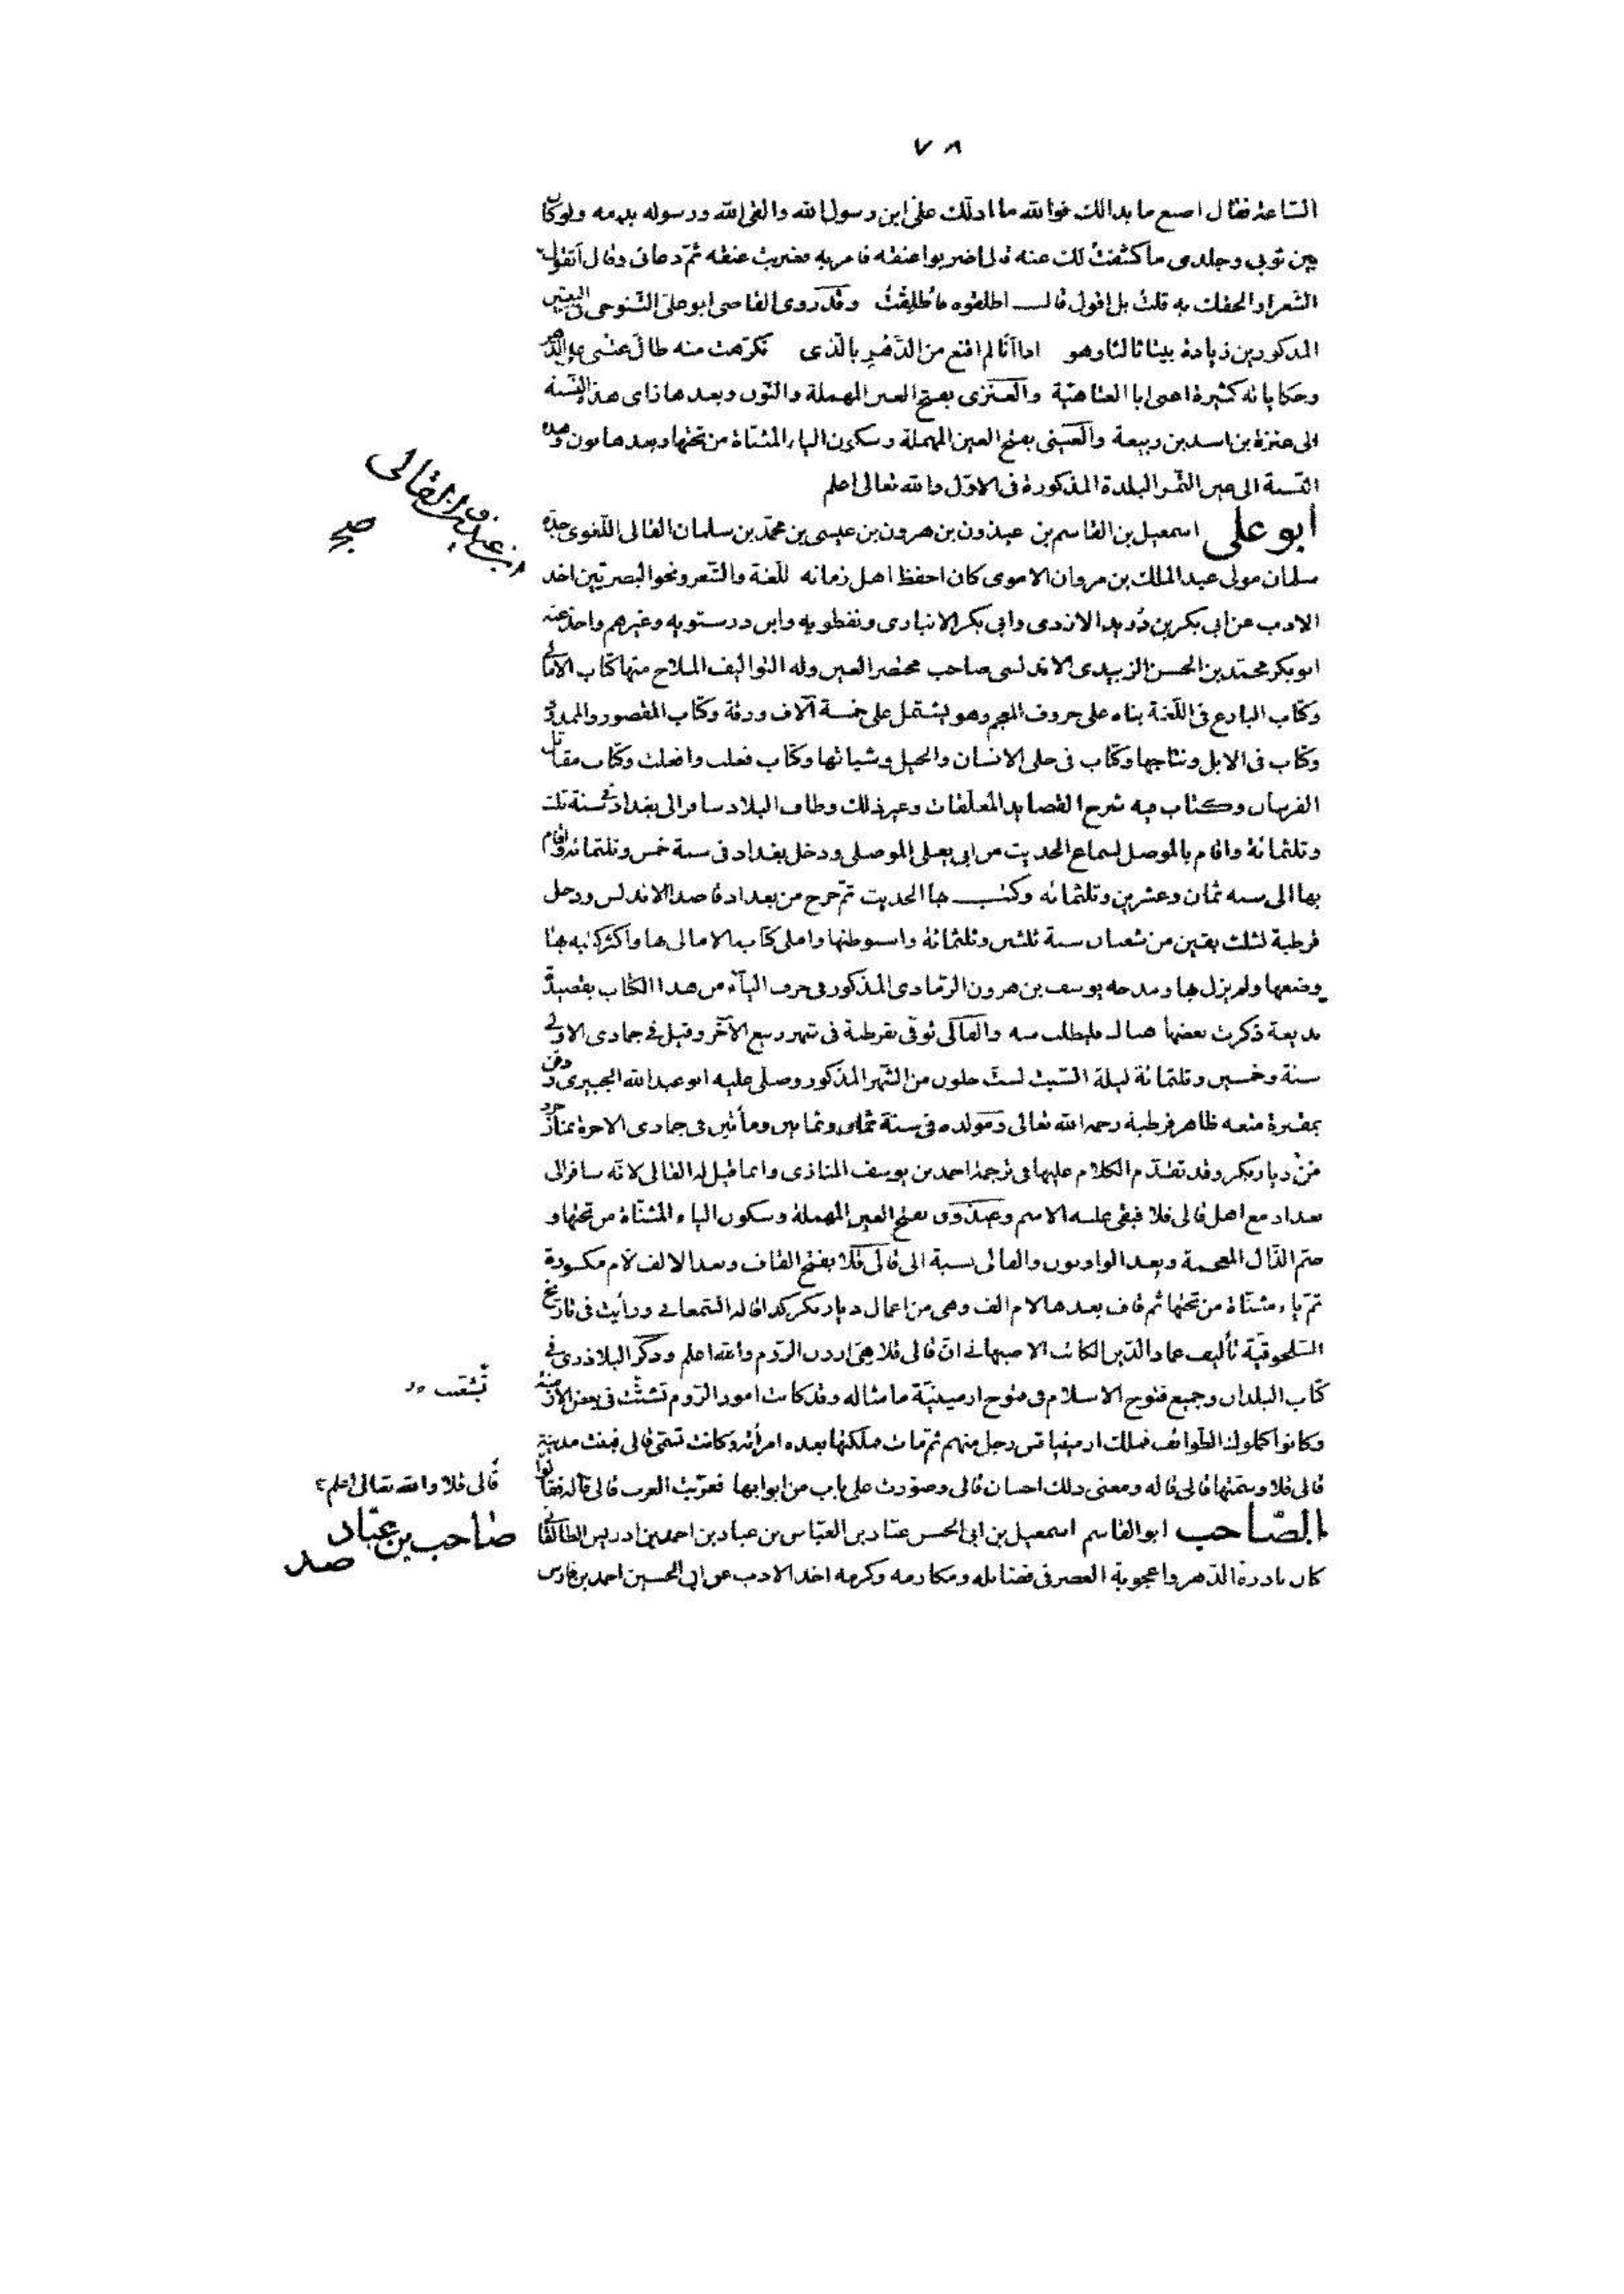 ٧٨
الساعة فقال اصنع ما بدا لك فوالله ما ادلّك على ابن رسول الله والقى الله ورسوله بدمه ولو كان
بين ثوبى وجلدى ما كشفت لك عنه قال اضربوا عنقه فامر به فضربت عنقه ثمّ دعانى وقال اتقول
الشعر او الحقك به قلت بل اقول قال اطلقوه فاُطلِقتُ وقد روى القاضى ابو علىّ التنوخى فى البيتين
المذكورين زيادة بيتا ثالثا وهو اذا انا لم اقنع من الدّهر بالّذى تكرّهت منه طال عتبى على الدّهر
وحكاياته كثيرة اعنى ابا العتاهيّة والعنزى بفتح العين المهملة والنّون وبعدها زاى هذه النسبة
الى عنزة بن اسد بن ربيعة والعينى بفتح العين المهملة وسكون الياء المثنّاة من تحتها وبعدها نون وهذه
النّسبة الى عين التّمر البلدة المذكورة فى الاوّل والله تعالى اعلم
أبو على اسمعيل بن القاسم بن عيذون بن هرون بن عيسى بن محمّد بن سلمان القالى اللّغوى جدّه
سلمان مولى عبد الملك بن مروان الاموى كان احفظ اهل زمانه للّغة والشّعر ونحو البصريّين اخذ
الادب عن ابى بكر بن دُريد الازدى وابى بكر الانبارى ونفطويه وابن درستويه وغيرهم واخذ عنه
ابو بكر محمّد بن الحسن الزبيدى الاندلسى صاحب مختصر العين وله التواليف الملاح منها كتاب الامالى
وكتاب البارع فى اللّغة بناه على حروف المعجم وهو يشتمل على خمسة آلاف ورقة وكتاب المقصور والممدود
وكتاب فى الابل ونتاجها وكتاب فى حلى الانسان والخيل وشياتها وكتاب فعلت وافعلت وكتاب مقاتل
الفرسان وكتاب فيه شرح القصايد المعلّقات وغير ذلك وطاف البلاد سافر الى بغداد فى سنة ثلث
وثلثمائة واقام بالموصل لسماع الحديث من ابى يعلى الموصلى ودخل بغداد فى سنة خمس وثلثمائة واقام
بها الى سنه ثمان وعشرين وثلثمائه وكتب بها الحديث ثمّ خرج من بغداد قاصدا الاندلس ودخل
قرطبة لثلث بقين من شعبان سنة ثلثين وثلثمائة واستوطنها واملى كتاب الامالى بها واكثر كتبه بها
وضعها ولم يزل بها ومدحه يوسف بن هرون الرّمادى المذكور فى حرف اليآء من هذا الكتاب بقصيدة
بديعة ذكرت بعضها هناك فليطلب منه والقالى توفّى بقرطبة فى شهر ربيع الآخر وقيل فى جمادى الاولى
سنة وخمسين وثلثمائة ليلة السّبت لستّ خلون من الشّهر المذكور وصلّى عليه ابو عبد الله الجبيرى ودفن
بمقبرة متعه ظاهر قرطبة رحمه الله تعالى ومولده فى سنة ثمان وثمانين ومأتين فى جمادى الاخرة بمنازجرد
من ديار بكر وقد تقدّم الكلام عليها فى ترجمة احمد بن يوسف المنازى وانما قيل له القالى لانّه سافر الى
بغداد مع اهل قالى قلا فبقى عليه الاسم وعيذون بفتح العين المهملة وسكون الياء المثنّاة من تحتها و
ضمّ الذّال المعجمة وبعد الواو نون والقالى نسبة الى قالى قلا بفتح القاف وبعد الالف لام مكسورة
ثمّ ياء مثنّاة من تحتها ثم قاف بعدها لام الف وهى من اعمال ديار بكر كذا قاله السّمعانى ورأيت فى تاريخ
السّلجوقيّة تأليف عماد الدّين الكاتب الاصبهانى انّ قالى قلا هى ارزن الرّوم والله اعلم وذكر البلاذرى فى
كتاب البلدان وجميع فتوح الاسلام فى فتوح ارمينيّة ما مثاله وقد كانت امور الرّوم تشتّت فى بعض الازمنة
وكانوا كملوك الطّوائف فملك ارمينياقس رجل منهم ثمّ مات فملكتها بعده امرأته وكانت تسمّى قالى فبنت مدينة
قالى قلا وسمّتها قالى قاله ومعنى ذلك احسان قالى وصوّرت على باب من ابوابها فعرّبت العرب قالى قاله فقالوا
قالى قلا والله تعالى اعلم
الصّاحب ابو القاسم اسمعيل بن ابى الحسن عبّاد بن العبّاس بن عباد بن احمد بن ادريس الطالقانى
صاحب بن عبّاد
كان نادرة الدّهر واعجوبة العصر فى فضائله ومكارمه وكرمه اخذ الادب عن ابى الحسين احمد بن فارس